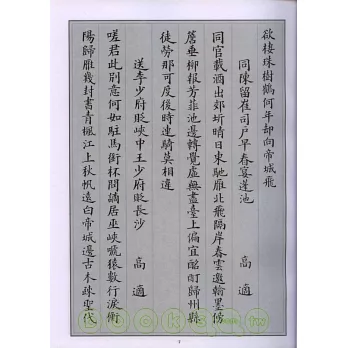 欲棲珠樹鶴何年却向帝城飛
同陳留崔司戶早春宴蓬池
高適
同官載酒出郊圻晴日東馳雁北飛隔岸春雲邀翰墨傍
簷垂柳報芳菲池邊轉覺虛無盡臺上偏宜酩酊歸州縣
徒勞那可度後時連騎莫相違
送李少府貶峽中王少府貶長沙
高適
嗟君此別意何如駐馬銜杯問謫居巫峽啼猿數行淚衡
陽歸雁幾封書青楓江上秋帆遠白帝城邊古木疎聖代